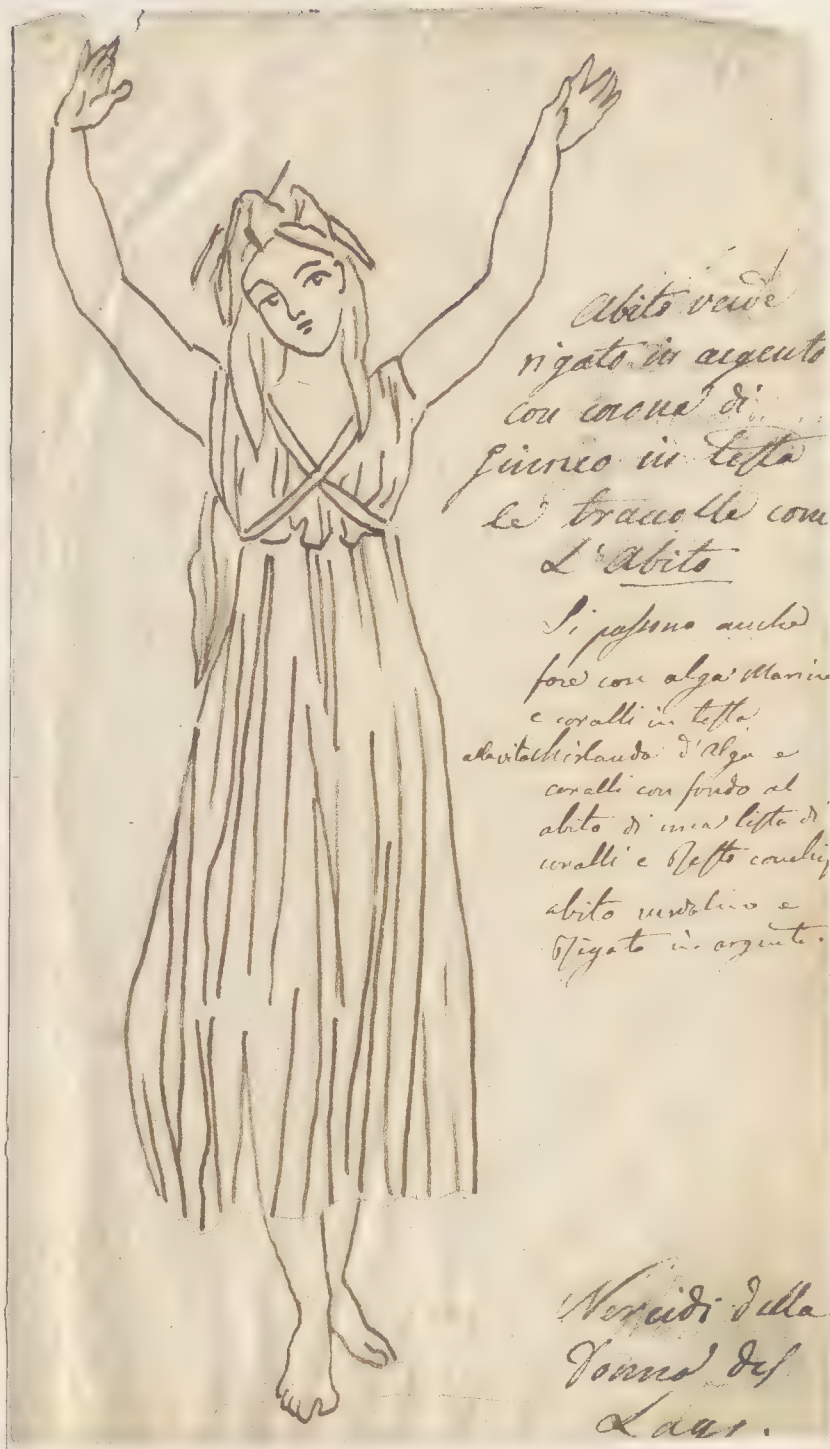 Abito verde
rigato in argento
con corona di
Giunco in testa
le tracolle come
L'Abito
Si possono anche
fare con alga Marina
e coralli in testa
alla vita Ghirlanda d'Alga e
coralli con fondo al
abito di una lista di
coralli e Resto conchi
abito verdolino e
Rigato in argento.
Nereidi della
Donna del
Lago.